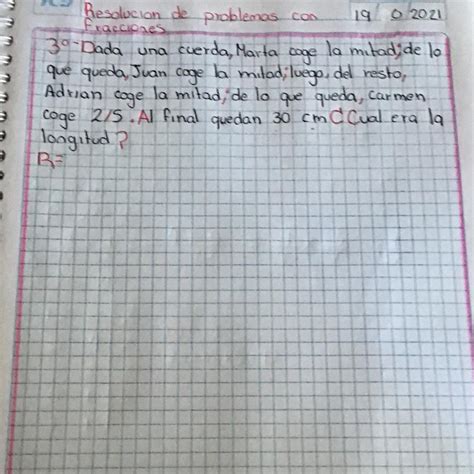 Resolucion de problemas con 19 0 2021
Fracciones
3º-Dada una cuerda, Marta coge la mitad; de lo
que queda, Juan coge la mitad; luego, del resto,
Adrian coge la mitad; de lo que queda, Carmen
coge 2/5. Al final quedan 30 cm ¿Cual era la
longitud?
R=